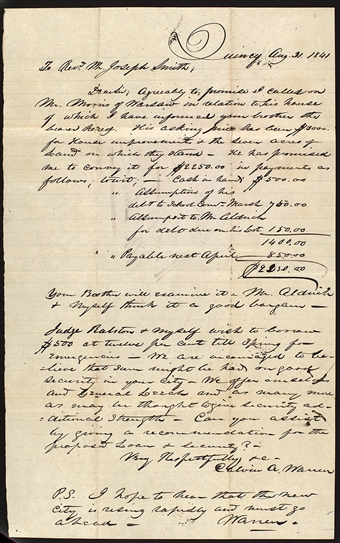 Quincy Aug. 31. 1841
To Rev. Mr. Joseph Smith,
Dear Sir; Agreeably to promise I called on
Mr. Morris of Warsaw in relation to his house
of which I have informed your brother the
bearer hereof. His asking price has been $3000.
for House improvements & the seven acres of
Land on which they stand – He has promised
me to convey it for $2250.00 in payments as
follows; towit; Cash in hand $500.00
" Assumption of his
debt to March 750.00
" Assumpsit to Mr Aldrich
for debt due on his Lot 150.00
1400.00
" Payable next April 850.00
$2250.00
Your Brother will examine it – Mr. Aldrich
& Myself think it a good bargain –
Judge Ralston & Myself wish to borrow
$500 at twelve per cent till Spring for
Emergencies – We are encouraged to be-
lieve that sum might be had on good
security in your City – We offer ourselves
and General Leech and as many more
as may be thought to give security ad-
-ditional Strength – Can you assist
by giving a recommendation for the
proposed Loan & security? –
Very Respectfully &c –
Calvin A. Warren
P.S. I hope to hear that the new
City is rising rapidly and must go
ahead – Warren –